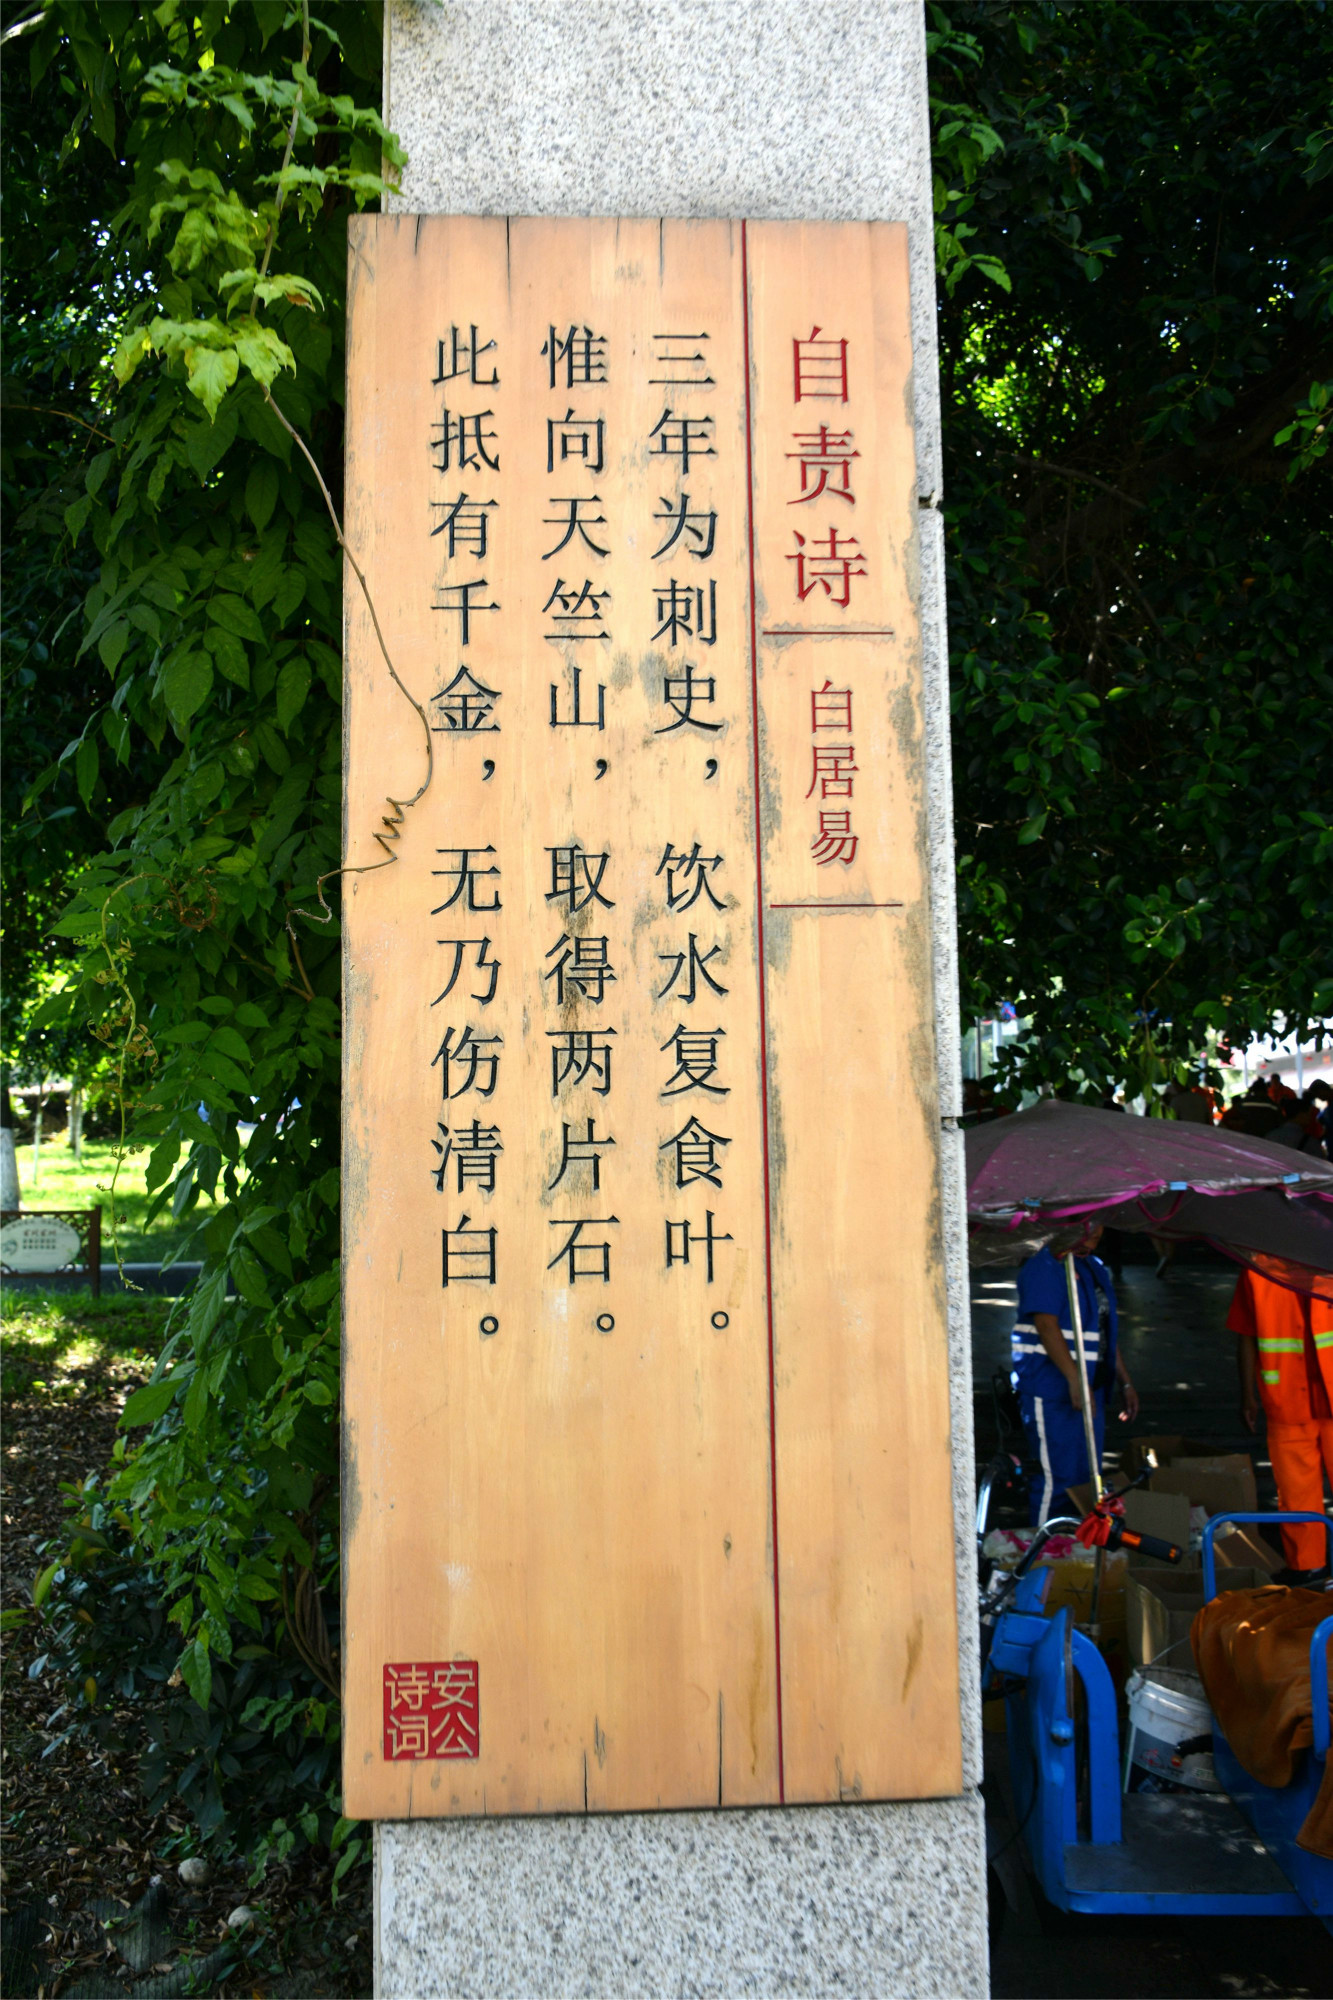 自责诗
白居易
三年为刺史，饮水复食叶。
惟向天竺山，取得两片石。
此抵有千金，无乃伤清白。
安公
诗词